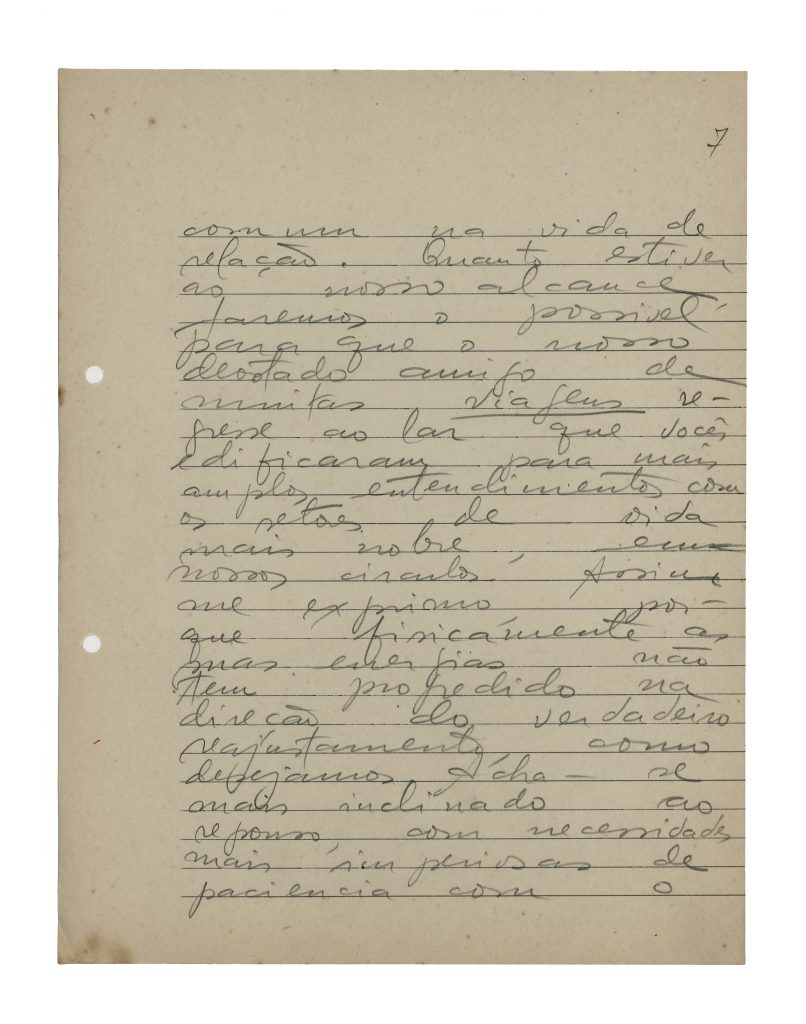 7
comum na vida de
relação. Quanto estiver
ao nosso alcance
faremos o possivel
para que o nosso
devotado amigo de
muitas viagens re-
gresse ao lar que vocês
edificaram para mais
amplos entendimentos com
os setores de vida
mais nobre, em
nossos circulos. Assim
me exprimo por-
que fisicámente as
suas energias não
tem progredido na
direcão do verdadeiro
reajustamento, como
desejamos. Acha-se
mais inclinado ao
repouso, com necessidades
mais imperiosas de
paciencia com o